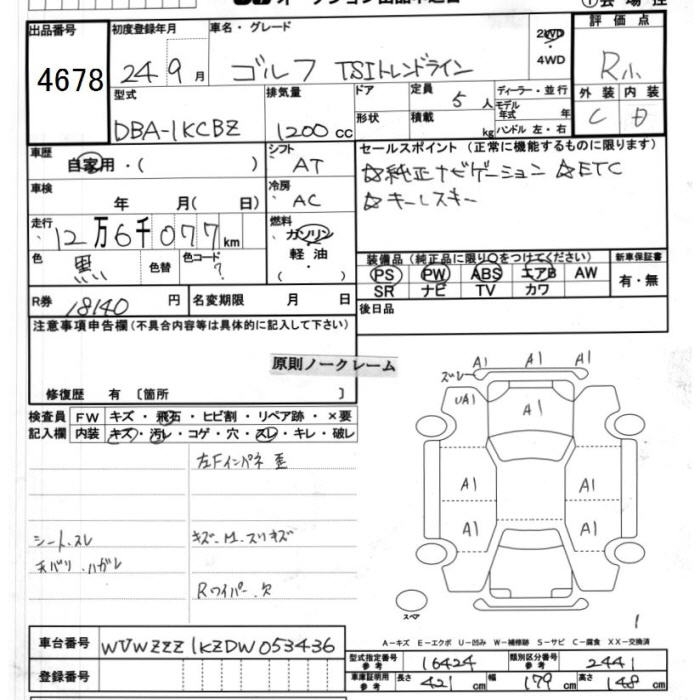 オークション出品申込書
①会場控
出品番号 4678
初度登録年月 24 9 月
車名・グレード ゴルフ TSIトレンドライン
2WD
4WD
評価点
R小
型式 DBA-1KCBZ
排気量 1200 cc
ドア
形状
定員 5 人
積載 kg
ディーラー・並行
モデル年式 年
ハンドル 左・右
外装 内装
C D
車歴 自家用・( )
シフト AT
車検 年 月( 日)
冷房 AC
セールスポイント (正常に機能するものに限ります)
☆純正ナビゲーション ☆ETC
☆キーレスキー
走行 12万6千077km
燃料 ガソリン・軽油
色 黒
色替
色コード ?
装備品 (純正品に限り○をつけてください)
PS PW ABS エアB AW
SR ナビ TV カワ
新車保証書
有・無
R券 18140 円
名変期限 月 日
後日品
注意事項申告欄(不具合内容等は具体的に記入して下さい)
原則ノークレーム
修復歴 有 [箇所 ]
検査員記入欄
FW キズ・飛石・ヒビ割・リペア跡・×要
内装 キズ・汚レ・コゲ・穴・スレ・キレ・破レ
左Fインパネ 歪
シート.スレ
天バリ.ハガレ
キズ.M.スリキズ
Rワイパー.欠
ズレ A1 A1 A1
UA1
A1
A1 A1
A1 A1
スペア
1
A-キズ E-エクボ U-凹み W-補修跡 S-サビ C-腐食 XX-交換済
車台番号 WVWZZZ1KZDW053436
登録番号
型式指定番号 参考 16424
類別区分番号 参考 2441
車庫証明用 参考 長さ 421 cm 幅 179 cm 高さ 148 cm